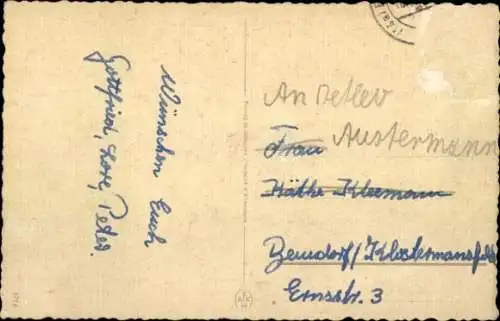 Wünschen Euch
Gottfried, Lore, Peter.
An Detlev
Austermann
Frau
Käthe Kleemann
Benndorf/Klostermansfeld
Ernsstr. 3